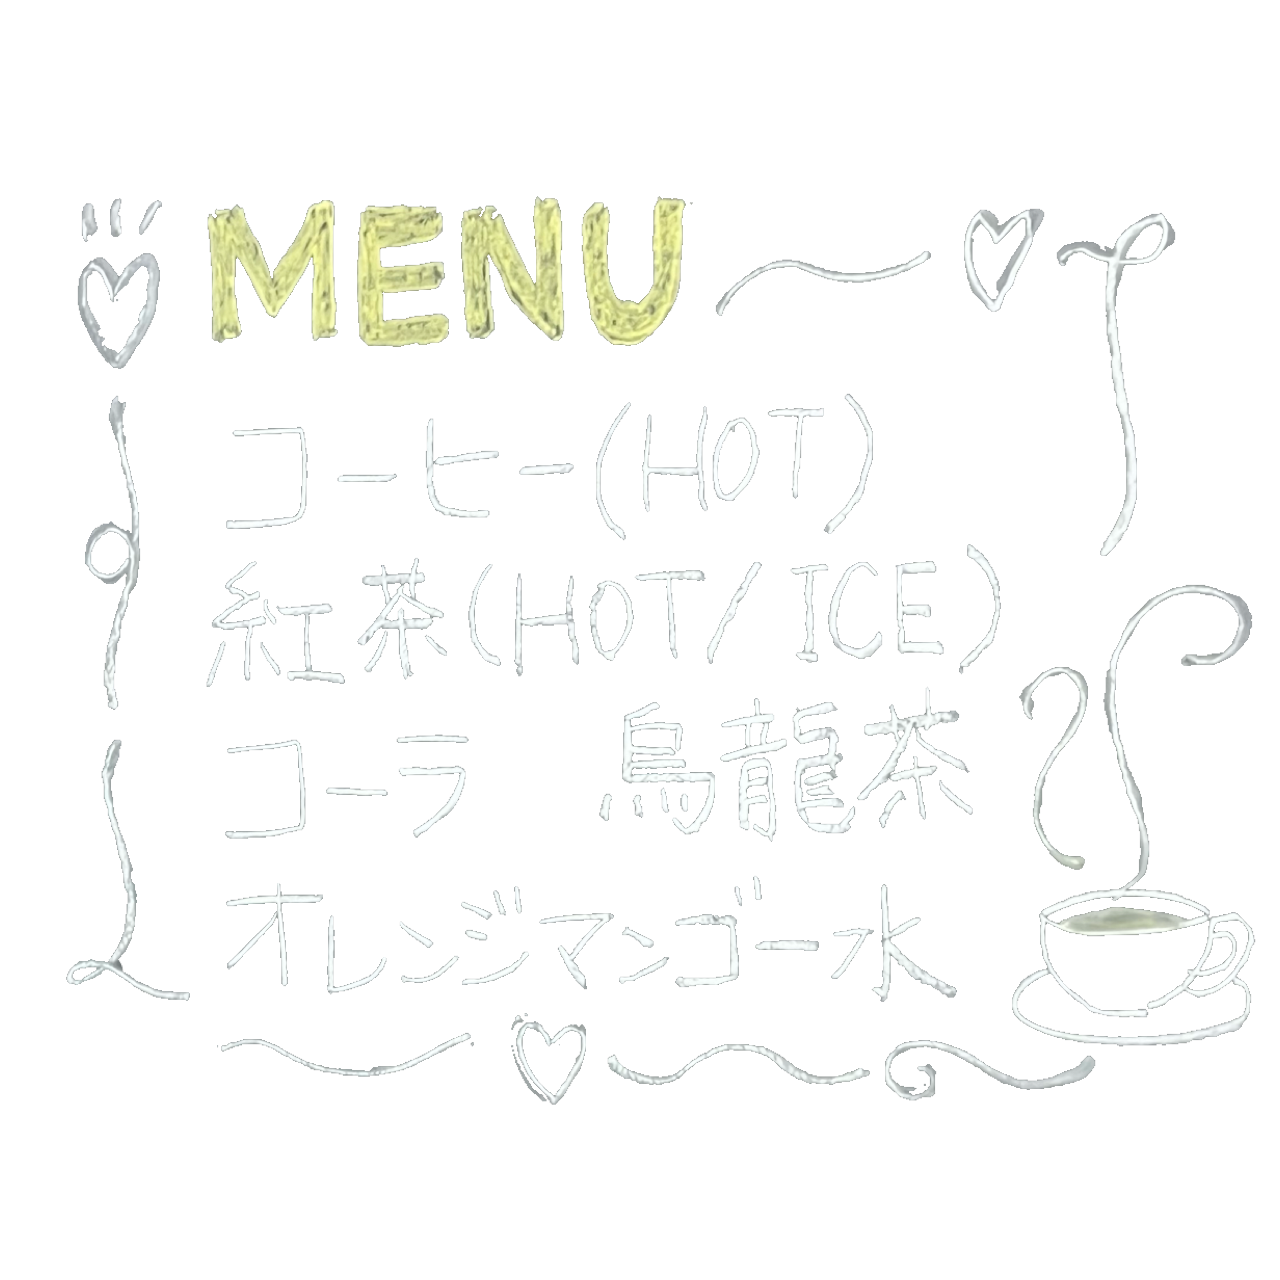 MENU
コーヒー(HOT)
紅茶(HOT/ICE)
コーラ 烏龍茶
オレンジマンゴー水